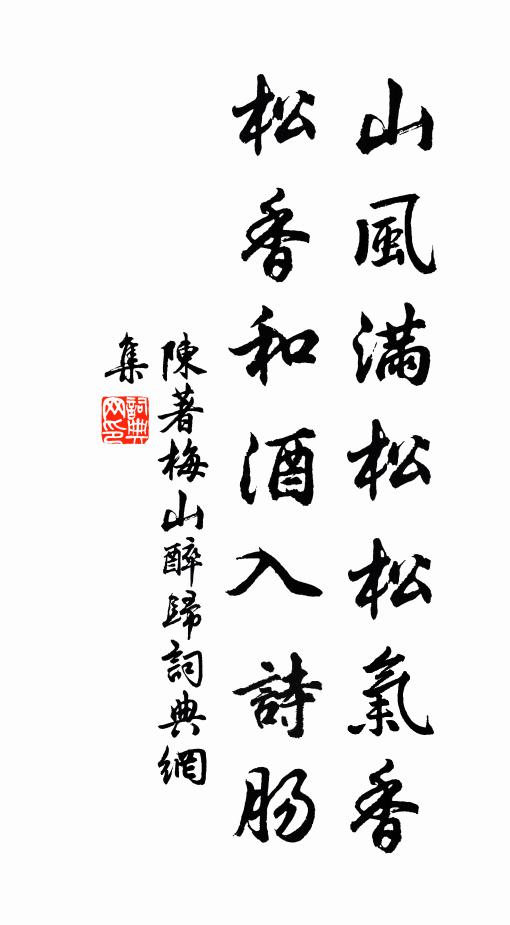 山風滿松松氣香
松香和酒入詩肠
陳著梅山醉歸詞典網
集
詞典
网印